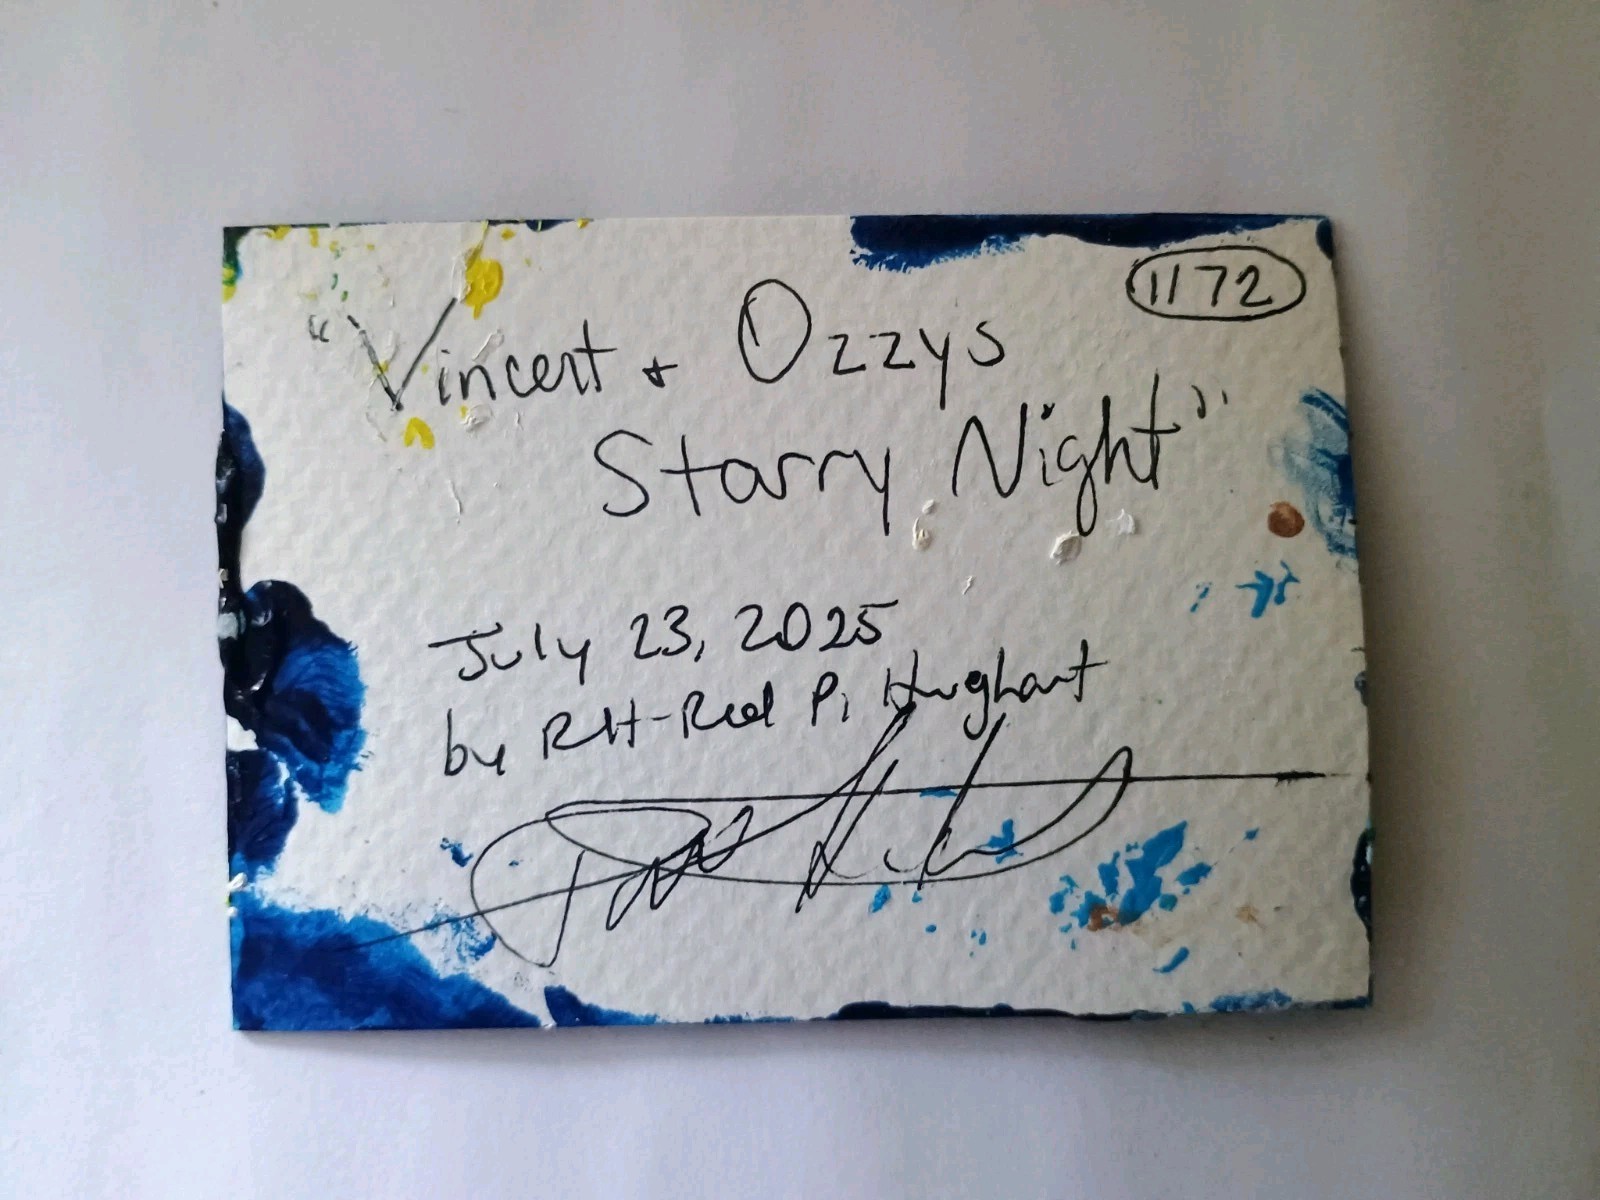 1172
"Vincent + Ozzys
Starry Night".
July 23, 2025
by RH-Red Pi Hughart